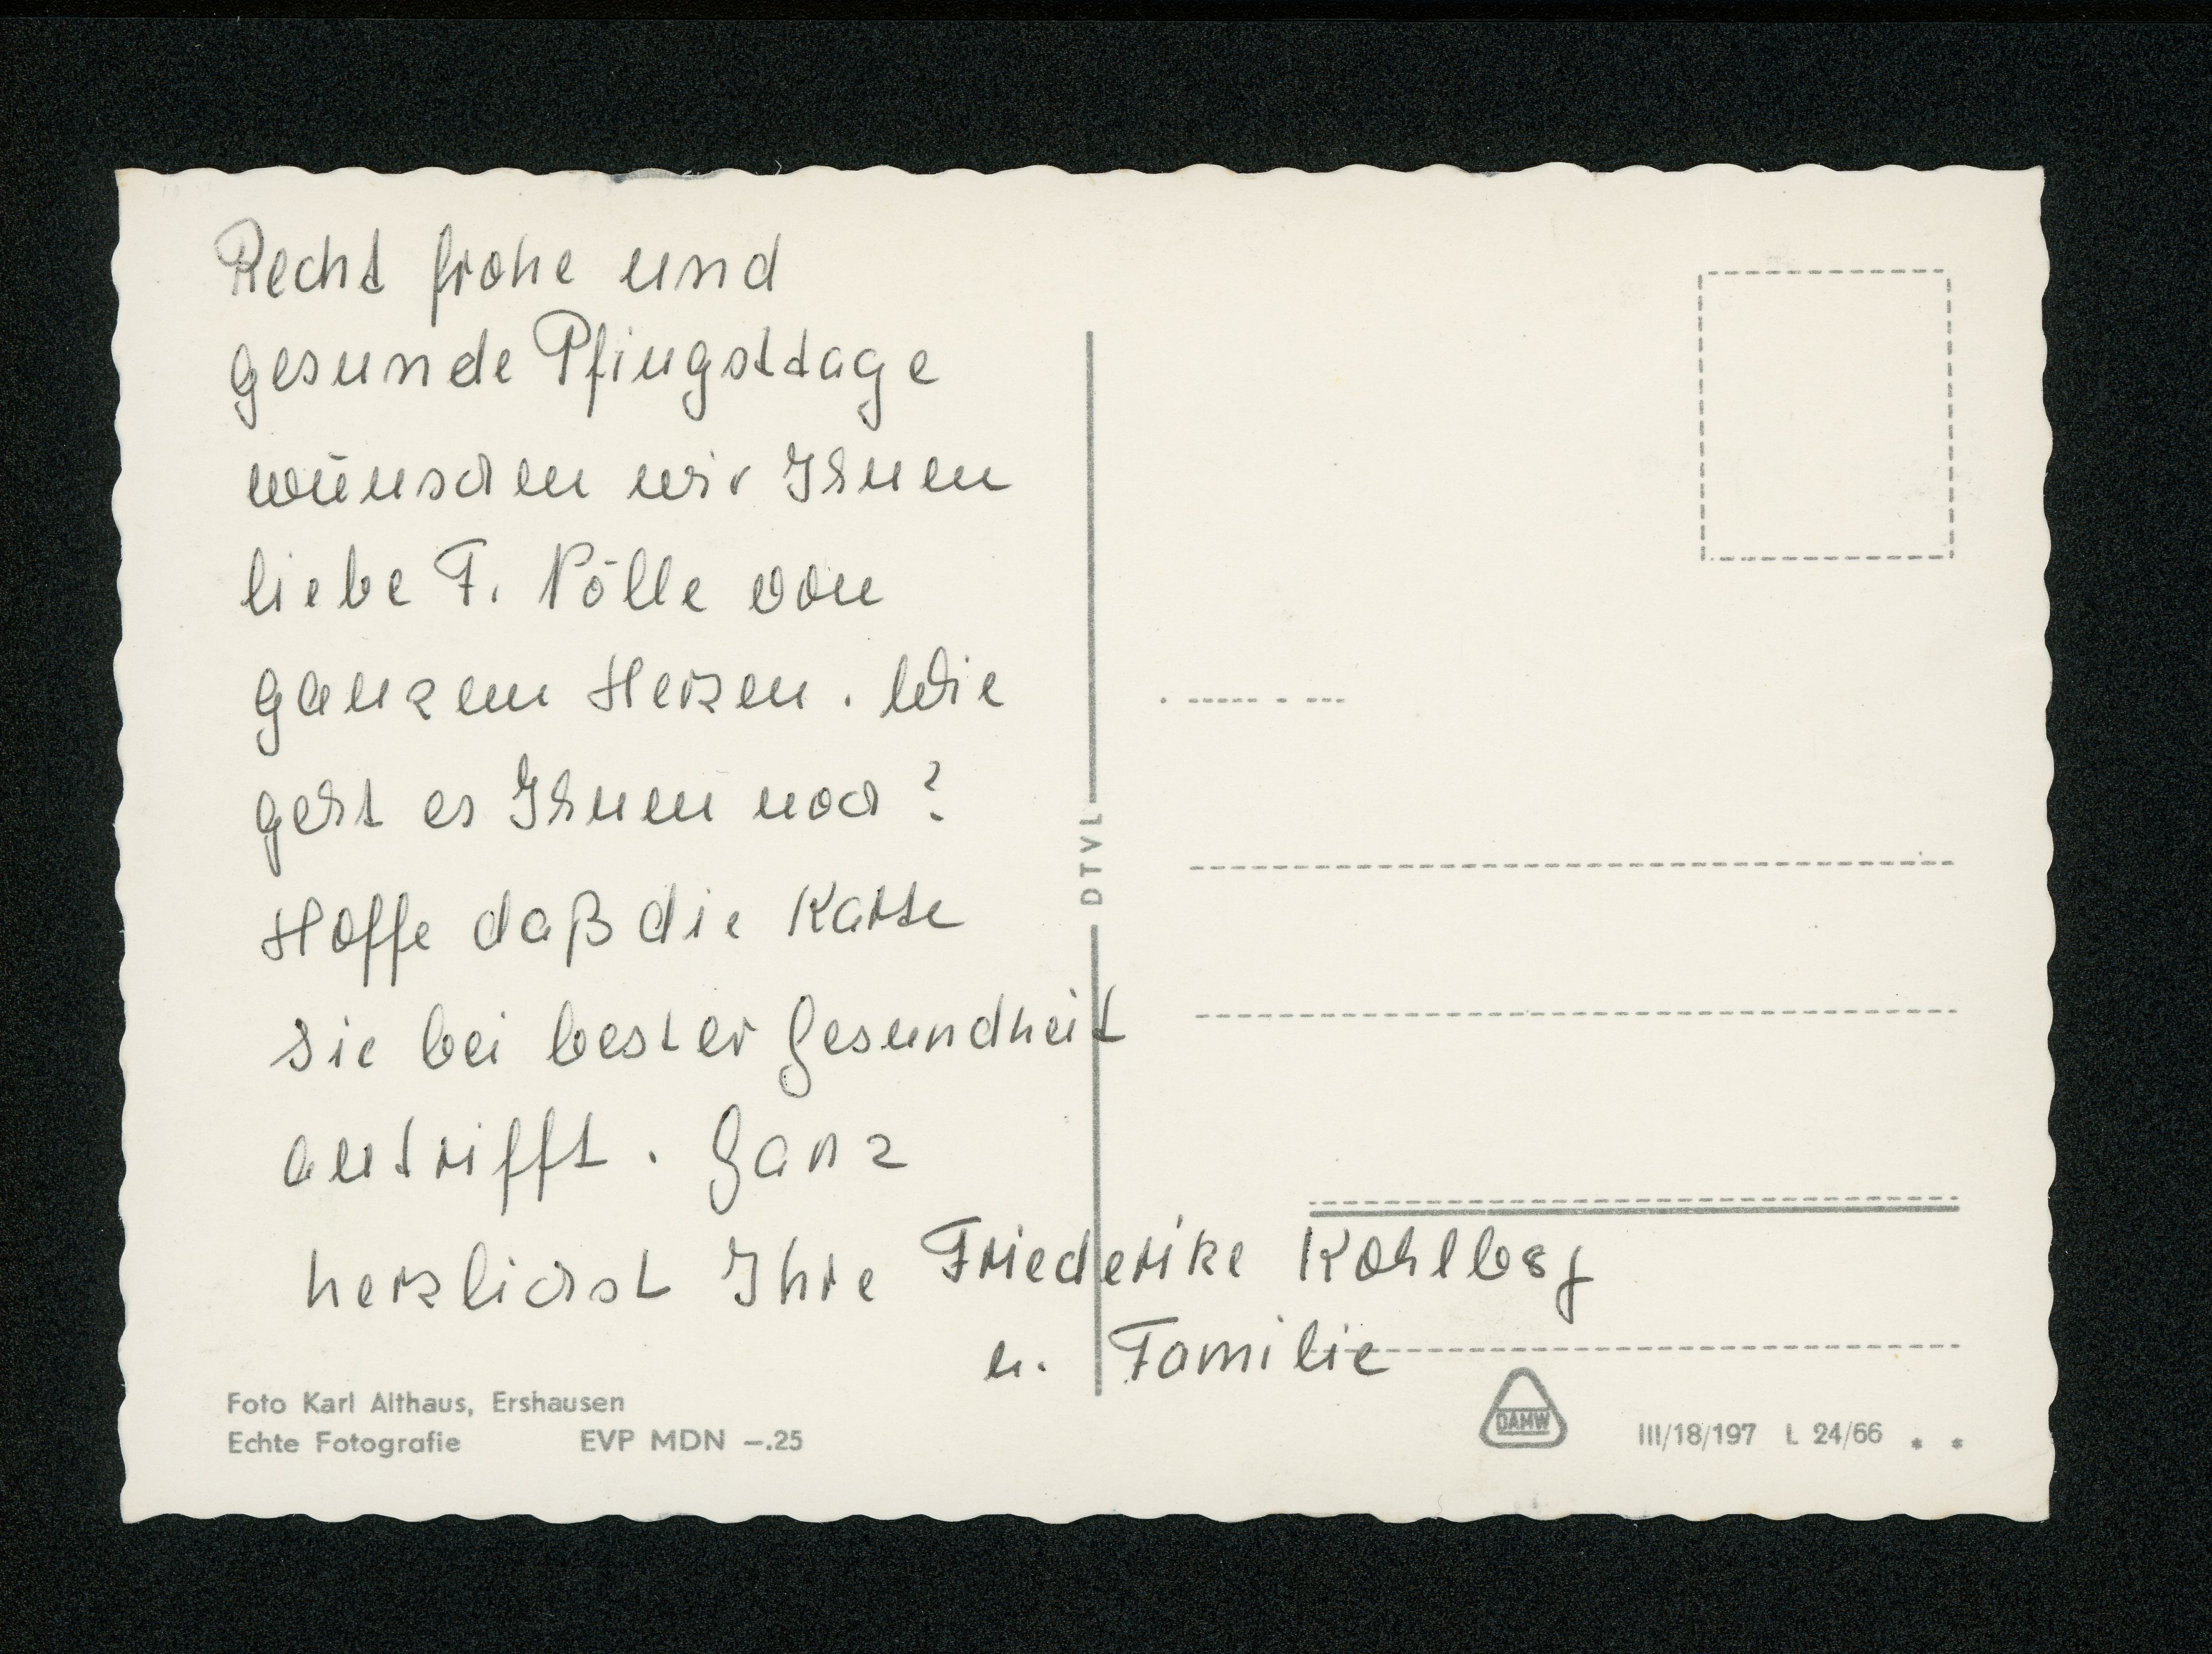 Recht frohe und
gesunde Pfingsttage
wünschen wir Ihnen
liebe F. Nölle von
ganzem Herzen. Wie
geht es Ihnen noch?
Hoffe daß die Karte
sie bei bester Gesundheit
antrifft. Ganz
herzlichst Ihre Friederike
u. Familie
DTVL
Foto Karl Althaus, Ershausen
Echte Fotografie EVP MDN –.25
DAMW
III/18/197 L 24/66 * *